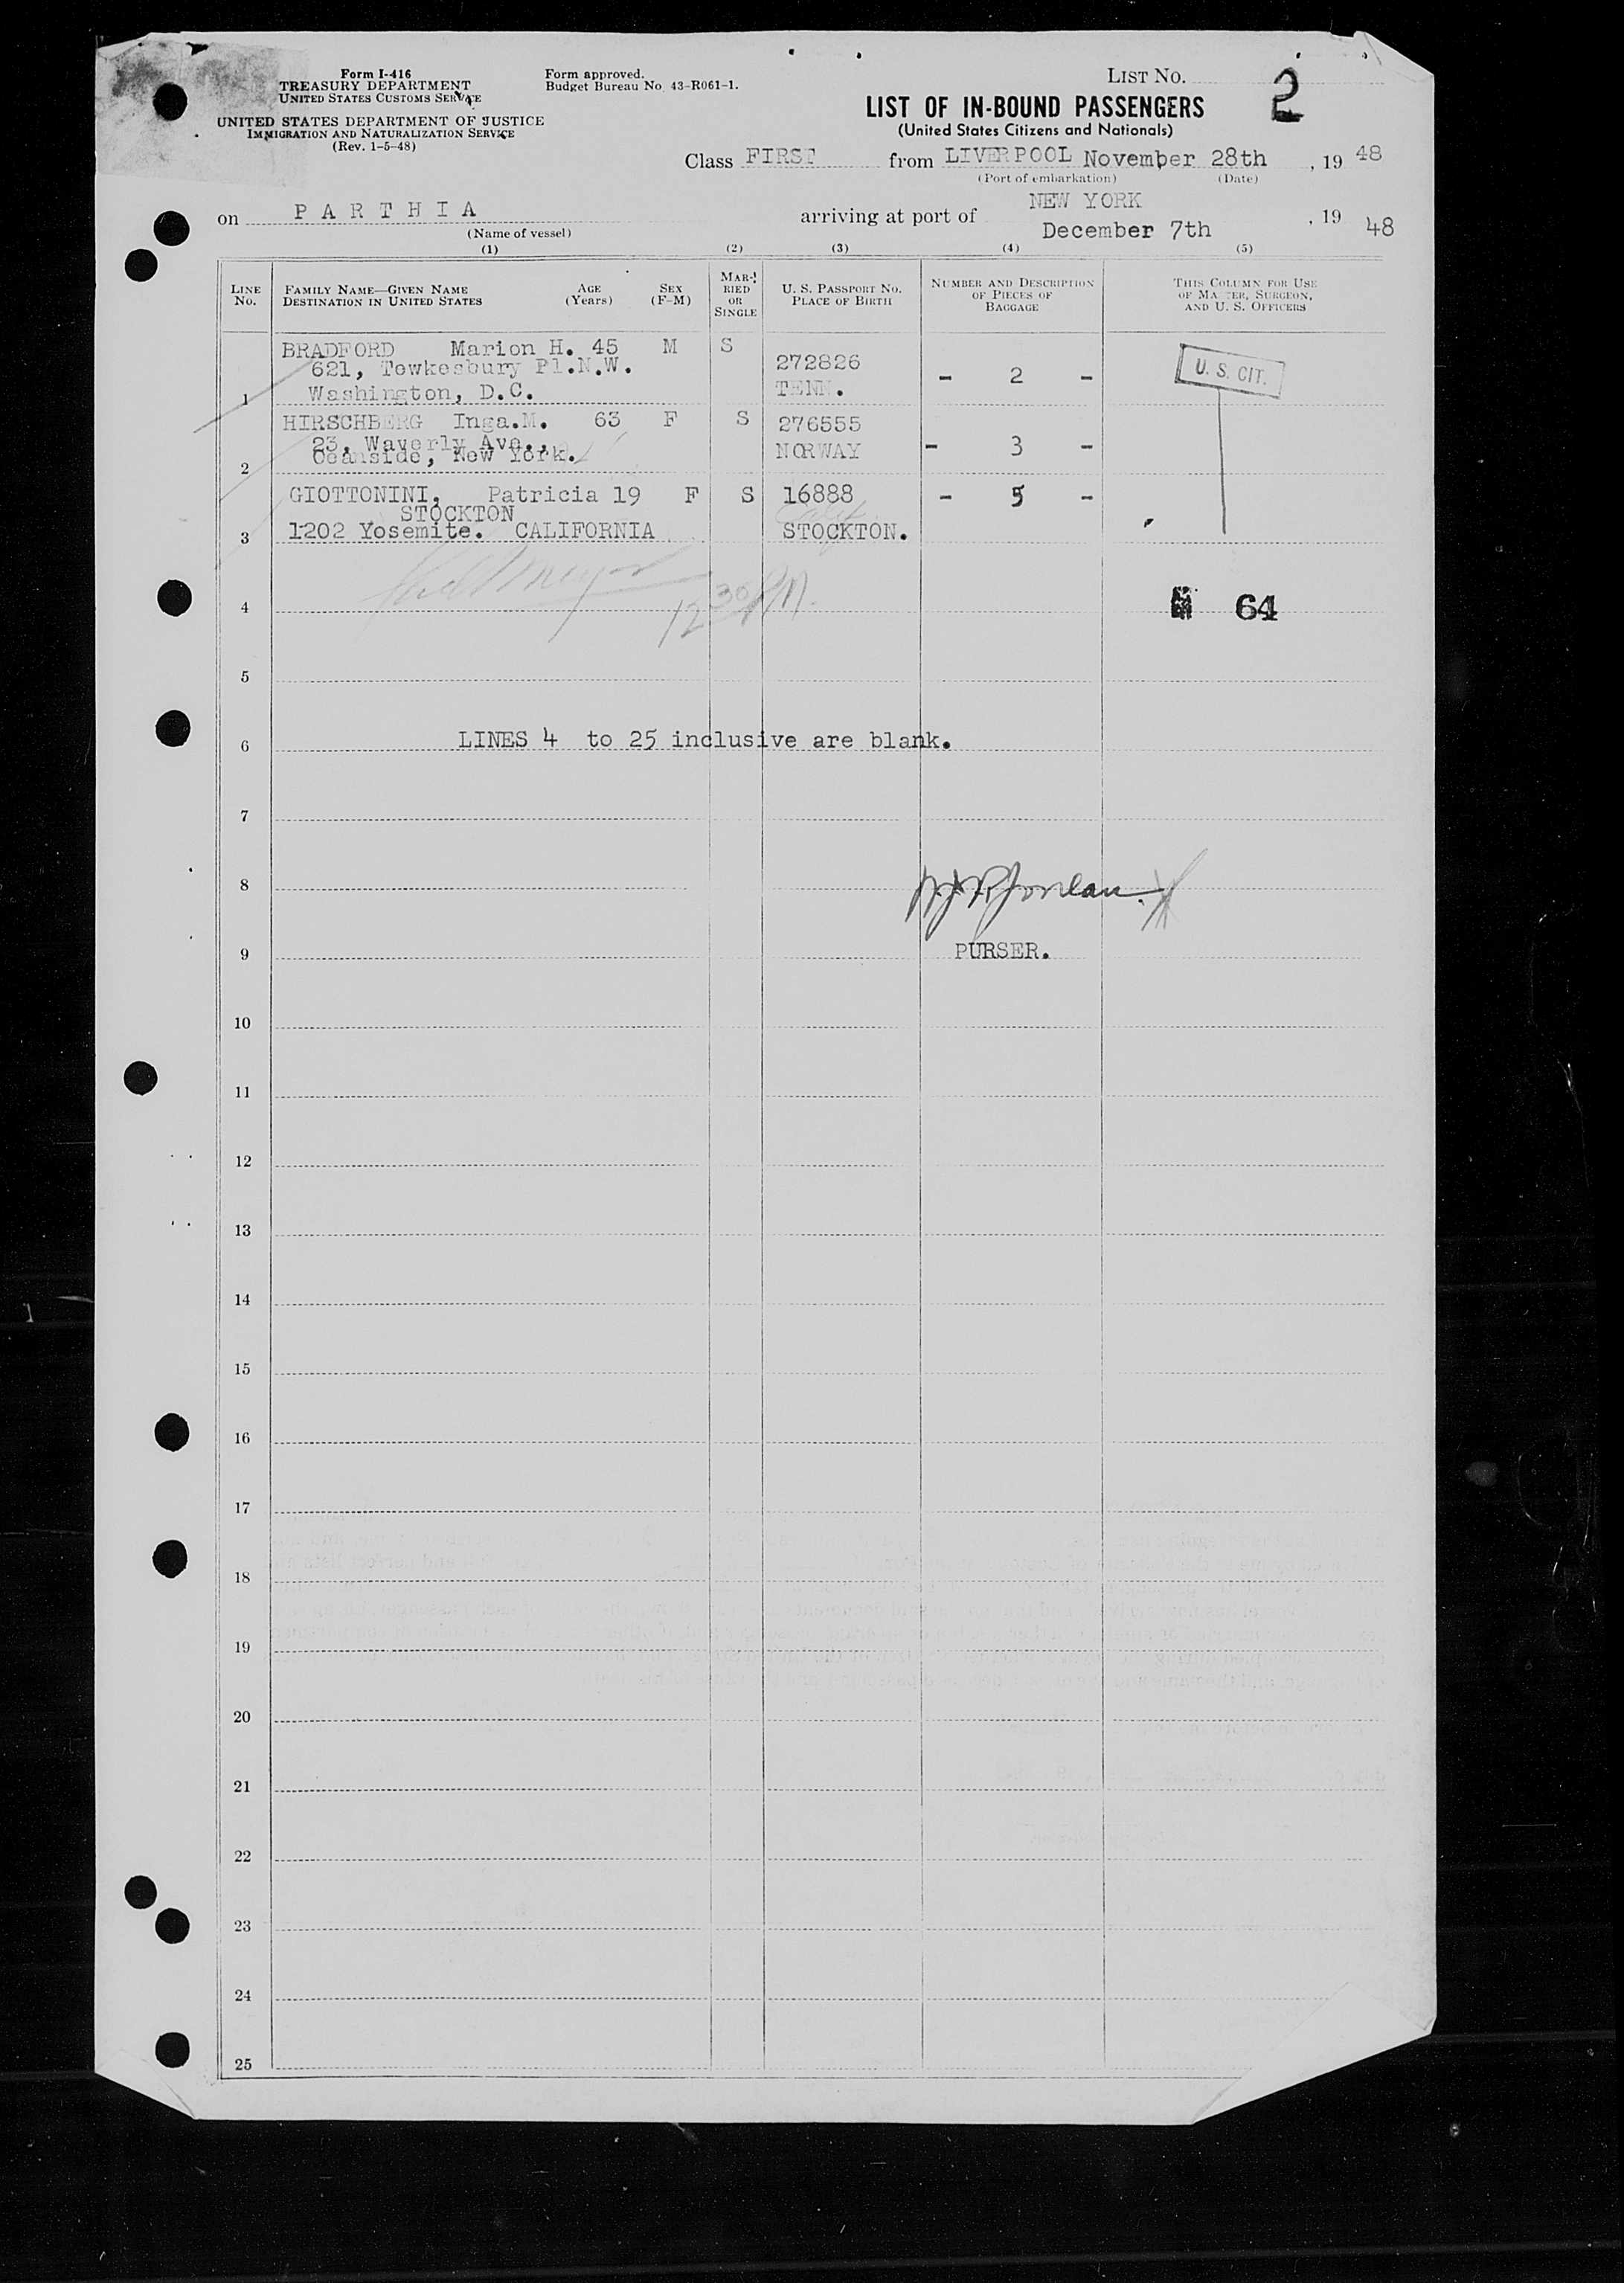 Form I-416
TREASURY DEPARTMENT
UNITED STATES CUSTOMS SERVICE
UNITED STATES DEPARTMENT OF JUSTICE
IMMIGRATION AND NATURALIZATION SERVICE
(Rev. 1-5-48)
Form approved.
Budget Bureau No. 43-R061-1.
LIST NO. 2
LIST OF IN-BOUND PASSENGERS
(United States Citizens and Nationals)
Class FIRST from LIVERPOOL November 28th, 19 48
(Port of embarkation) (Date)
on PARTHIA arriving at port of NEW YORK December 7th, 19 48
(Name of vessel)
(1) (2) (3) (4) (5)
LINE NO.
FAMILY NAME—GIVEN NAME
DESTINATION IN UNITED STATES
AGE (Years)
SEX (F-M)
MARRIED OR SINGLE
U. S. PASSPORT NO.
PLACE OF BIRTH
NUMBER AND DESCRIPTION OF PIECES OF BAGGAGE
THIS COLUMN FOR USE OF MASTER, SURGEON, AND U. S. OFFICERS
BRADFORD Marion H. 45 M S
621, Towkesbury Pl.N.W. 272826
1 Washington, D.C. TENN. - 2 - U. S. CIT.
HIRSCHBERG Inga.M. 63 F S 276555
23, Waverly Ave.,
2 Oceanside, New York. NORWAY - 3 -
GIOTTONINI, Patricia 19 F S 16888 - 5 -
STOCKTON Calif
3 1202 Yosemite. CALIFORNIA STOCKTON.
4 12 30 PM. 64
5
6 LINES 4 to 25 inclusive are blank.
7
8
9 PURSER.
10
11
12
13
14
15
16
17
18
19
20
21
22
23
24
25